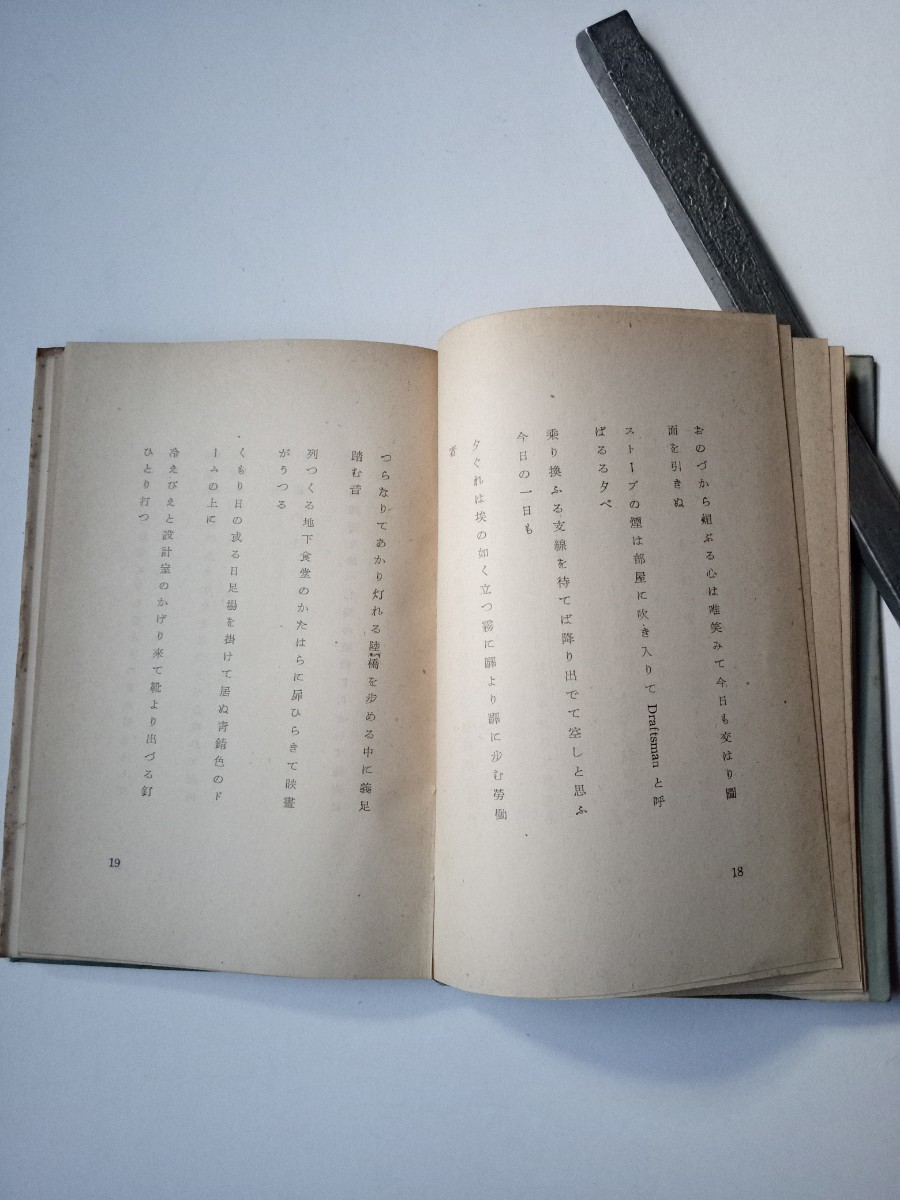 おのづから媚ぶる心は唯笑みて今日も交はり圖
面を引きぬ
ストーブの煙は部屋に吹き入りて Draftsman と呼
ばるる夕べ
乘り換ふる支線を待てば降り出でて空しと思ふ
今日の一日も
夕ぐれは埃の如く立つ霧に驛より驛に歩む勞働
者
18
つらなりてあかり灯れる陸橋を歩める中に義足
踏む音
列つくる地下食堂のかたはらに扉ひらきて映畫
がうつる
くもり日の或る日足場を掛けて居ぬ靑錆色のド
ームの上に
冷えびえと設計室のかげり來て靴より出づる釘
ひとり打つ
19